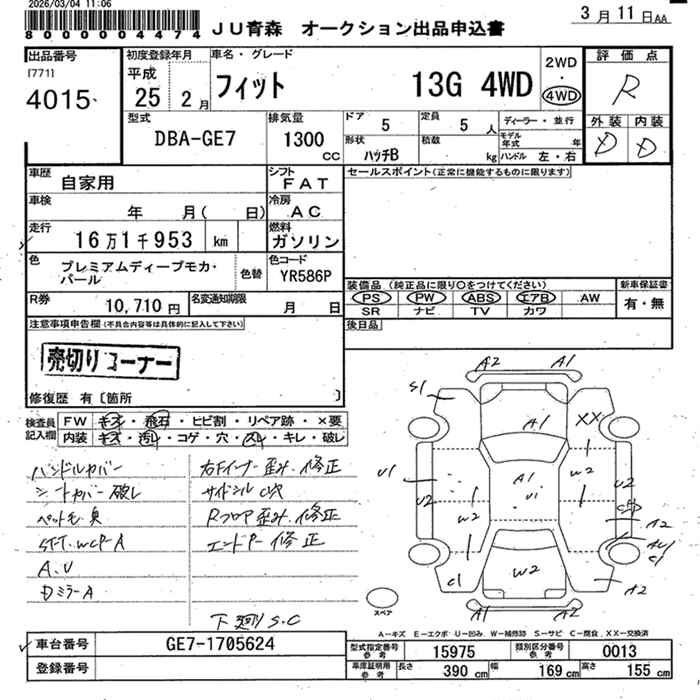 2026/03/04 11:06
8000004474
JU青森 オークション出品申込書
3月11日AA
出品番号
[771]
4015
初度登録年月
平成
25 2月
車名・グレード
フィット 13G 4WD
2WD
・
4WD
評価点
R
外装 内装
D D
型式
DBA-GE7
排気量
1300
CC
ドア 5
定員 5 人
形状 ハッチB
積数 kg
ディーラー・並行
モデル年式 年
ハンドル 左・右
車歴 自家用
シフト FAT
セールスポイント(正常に機能するものに限ります)
車検 年 月( 日)
冷房 AC
走行 16万1千953 km
燃料 ガソリン
色 プレミアムディープモカ・パール
色替
色コード YR586P
装備品(純正品に限り○をつけてください)
PS PW ABS エアB AW
SR ナビ TV カワ
新車保証書
有・無
R券 10,710円
名変通知期限 月 日
後日品
注意事項申告欄(不具合内容等は具体的に記入して下さい)
売切りコーナー
修復歴 有〔箇所 〕
検査員記入欄
FW キズ・飛石・ヒビ割・リペア跡・×要
内装 キズ・汚れ・コゲ・穴・スレ・キレ・破レ
ハンドルカバー
シートカバー破レ
ペット毛 臭
A.U
DミラーA
右Fインナー歪み.修正
サイドシル
Rフロア歪み.修正
エンドP 修正
下廻りS.C
A2 A1
S1
A1
XX
U1
U2
A1
U1
W2
U2
W2
A2
C1
C1
W2
A2
A1 A2
スペア
A-キズ E-エクボ U-凹み W-補修跡 S-サビ C-腐食 XX-交換済
車台番号 GE7-1705624
登録番号
型式指定番号 参考 15975
類別区分番号 参考 0013
車庫証明用 参考 長さ 390 cm 幅 169 cm 高さ 155 cm